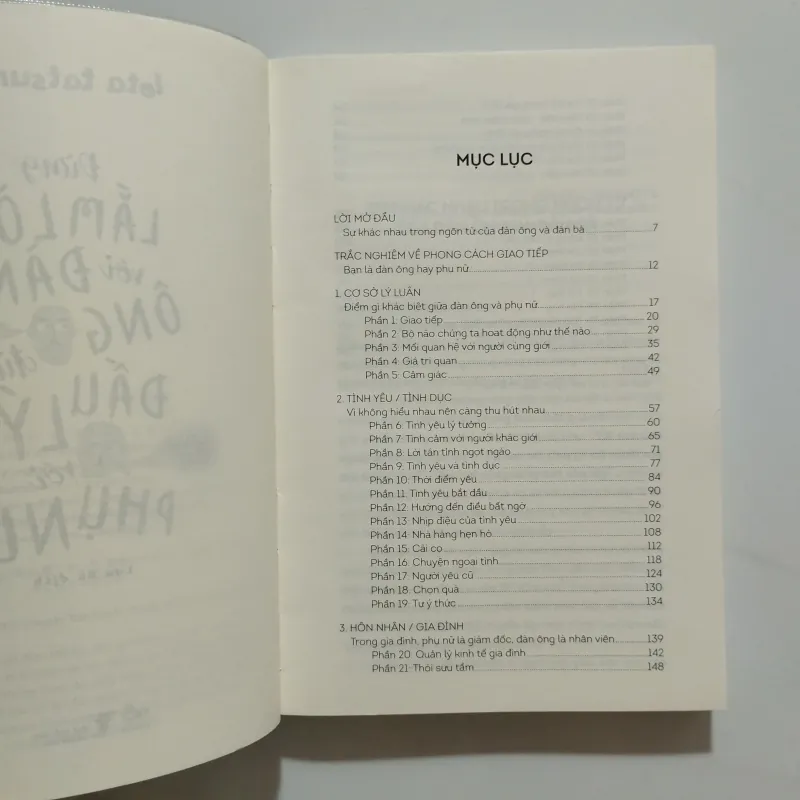 lota tatsun
Đừng
LẮM LỜ
với ĐÀN
ÔNG
ĐẤU LÝ
với
PHỤ NỮ
MỤC LỤC
LỜI MỞ ĐẦU
Sự khác nhau trong ngôn từ của đàn ông và đàn bà 7
TRẮC NGHIỆM VỀ PHONG CÁCH GIAO TIẾP
Bạn là đàn ông hay phụ nữ 12
1. CƠ SỞ LÝ LUẬN
Điểm gì khác biệt giữa đàn ông và phụ nữ 17
Phần 1: Giao tiếp 20
Phần 2: Bộ não chúng ta hoạt động như thế nào 29
Phần 3: Mối quan hệ với người cùng giới 35
Phần 4: Giá trị quan 42
Phần 5: Cảm giác 49
2. TÌNH YÊU / TÌNH DỤC
Vì không hiểu nhau nên càng thu hút nhau 57
Phần 6: Tình yêu lý tưởng 60
Phần 7: Tình cảm với người khác giới 65
Phần 8: Lời tán tỉnh ngọt ngào 71
Phần 9: Tình yêu và tình dục 77
Phần 10: Thời điểm yêu 84
Phần 11: Tình yêu bắt đầu 90
Phần 12: Hướng đến điều bất ngờ 96
Phần 13: Nhịp điệu của tình yêu 102
Phần 14: Nhà hàng hẹn hò 108
Phần 15: Cãi cọ 112
Phần 16: Chuyện ngoại tình 118
Phần 17: Người yêu cũ 124
Phần 18: Chọn quà 130
Phần 19: Tự ý thức 134
3. HÔN NHÂN / GIA ĐÌNH
Trong gia đình, phụ nữ là giám đốc, đàn ông là nhân viên 139
Phần 20: Quản lý kinh tế gia đình 142
Phần 21: Thói sưu tầm 148